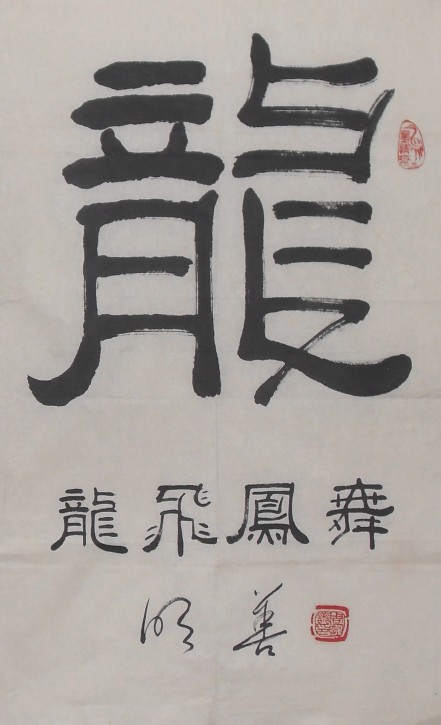 龍
龍飛鳳舞
明善